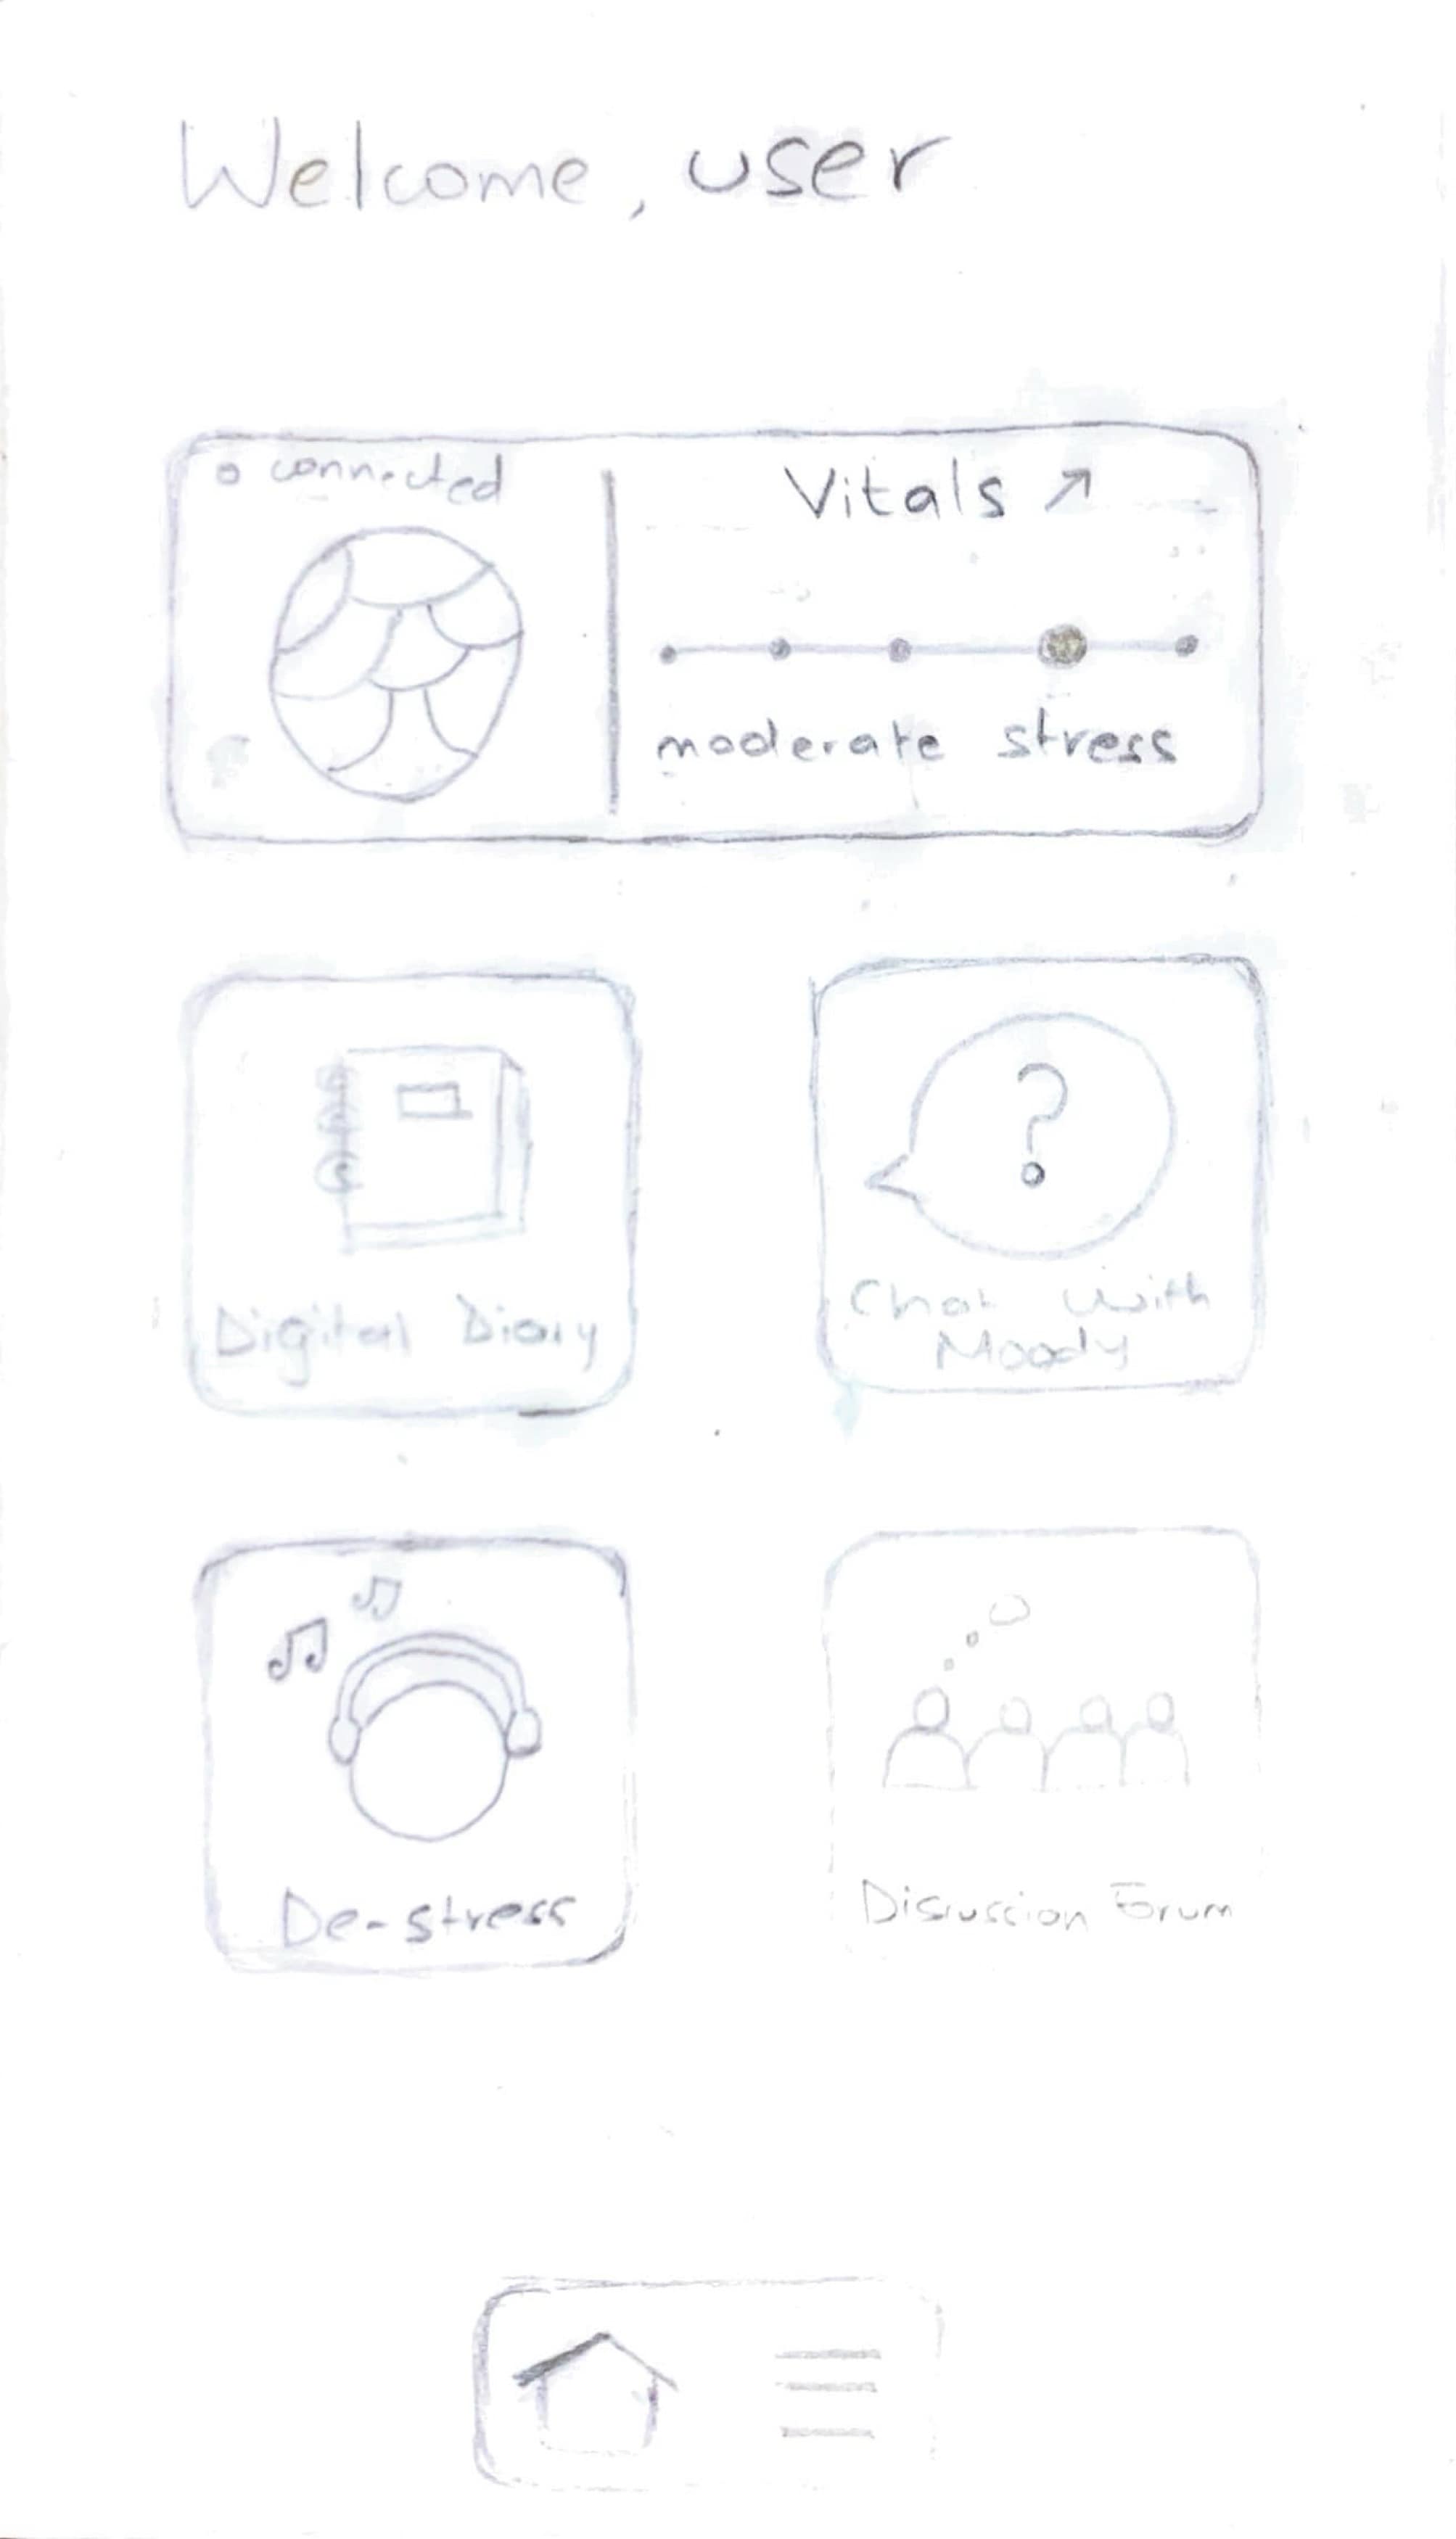 Welcome, user
connected
Vitals ↗
moderate stress
Digital Diary
Chat with
Moody
De-stress
Discussion Forum